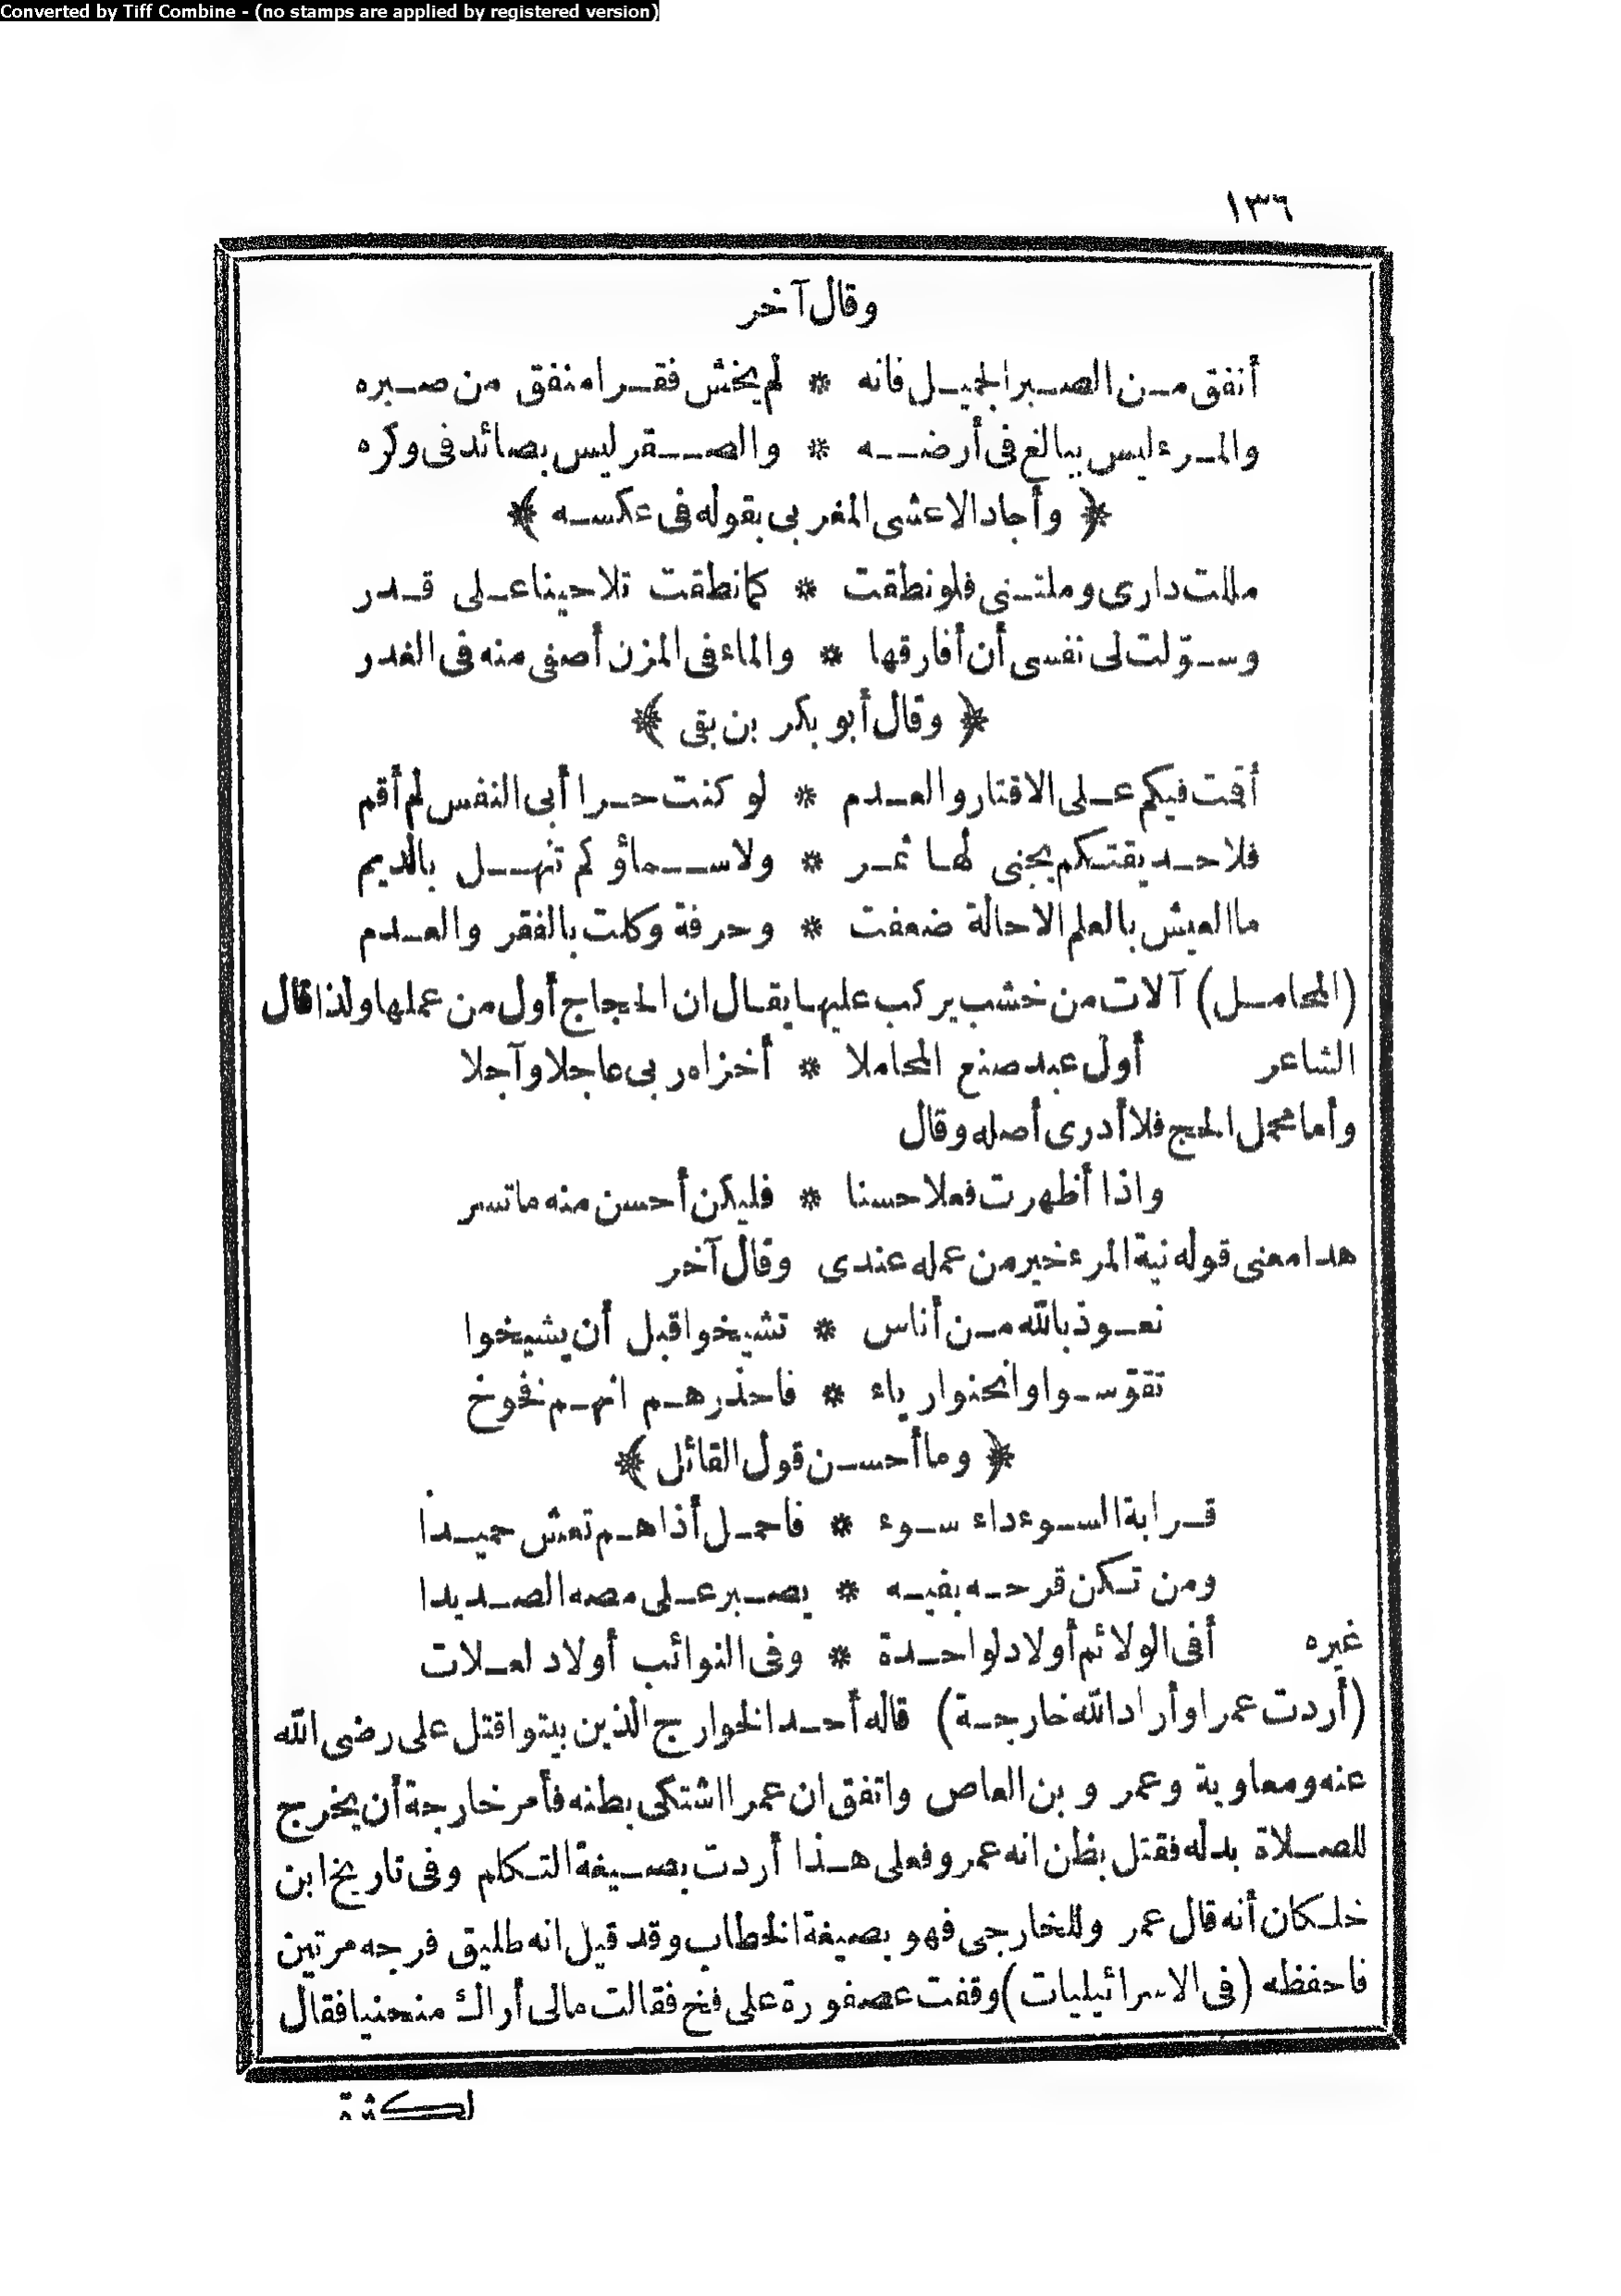 Converted by Tiff Combine - (no stamps are applied by registered version)
١٣٦
وقال آخر
أنفق من الصبر الجميل فانه * لم يخش فقرا منفق من صبره
والمرء ليس ببالغ فى أرضه * والصقر ليس بصائد فى وكره
﴿ وأجاد الاعشى المغربى بقوله فى عكسه ﴾
مللت دارى وملتنى فلو نطقت * كما نطقت تلاحينا على قدر
وسوّلت لى نفسى أن أفارقها * والماء فى المزن أصفى منه فى الغدر
﴿ وقال أبو بكر بن بقى ﴾
أقمت فيكم على الاقتار والعدم * لو كنت حرا أبى النفس لم أقم
فلا حديقتكم يجنى لها ثمر * ولا سماؤكم تنهل بالديم
ما العيش بالعلم الا حالة ضعفت * وحرفة وكلت بالفقر والعدم
(المحامل) آلات من خشب يركب عليها يقال ان الحجاج أول من عملها ولذا قال
الشاعر أول عبد صنع المحاملا * أخزاه ربى عاجلا وآجلا
وأما محمل الحج فلا أدرى أصله وقال
واذا أظهرت فعلا حسنا * فليكن أحسن منه ما تسر
هدا معنى قوله نية المرء خير من عمله عندى وقال آخر
نعوذ بالله من أناس * تشيخوا قبل أن يشيخوا
تقوّسوا وانحنوا رياء * فاحذرهم انهم نخوخ
﴿ وما أحسن قول القائل ﴾
قرابة السوء داء سوء * فاحمل أذاهم تعش حميدا
ومن تكن قرحه بفيه * يصبر على مصه الصديدا
غيره أفى الولائم أولاد لواحدة * وفى النوائب أولاد لعلات
(أردت عمرا وأراد الله خارجة) قاله أحد الخوارج الذين بيتوا قتل على رضى الله
عنه ومعاوية وعمرو بن العاص واتفق ان عمرا اشتكى بطنه فأمر خارجة أن يخرج
للصلاة بدله فقتل بظن انه عمرو فعلى هذا أردت بصيغة التكلم وفى تاريخ ابن
خلكان أنه قال عمر وللخارجى فهو بصيغة الخطاب وقد قيل انه طليق فرجه مرتين
فاحفظه (فى الاسرائيليات) وقفت عصفورة على فخ فقالت مالى أراك منحنيا فقال
لكثرة